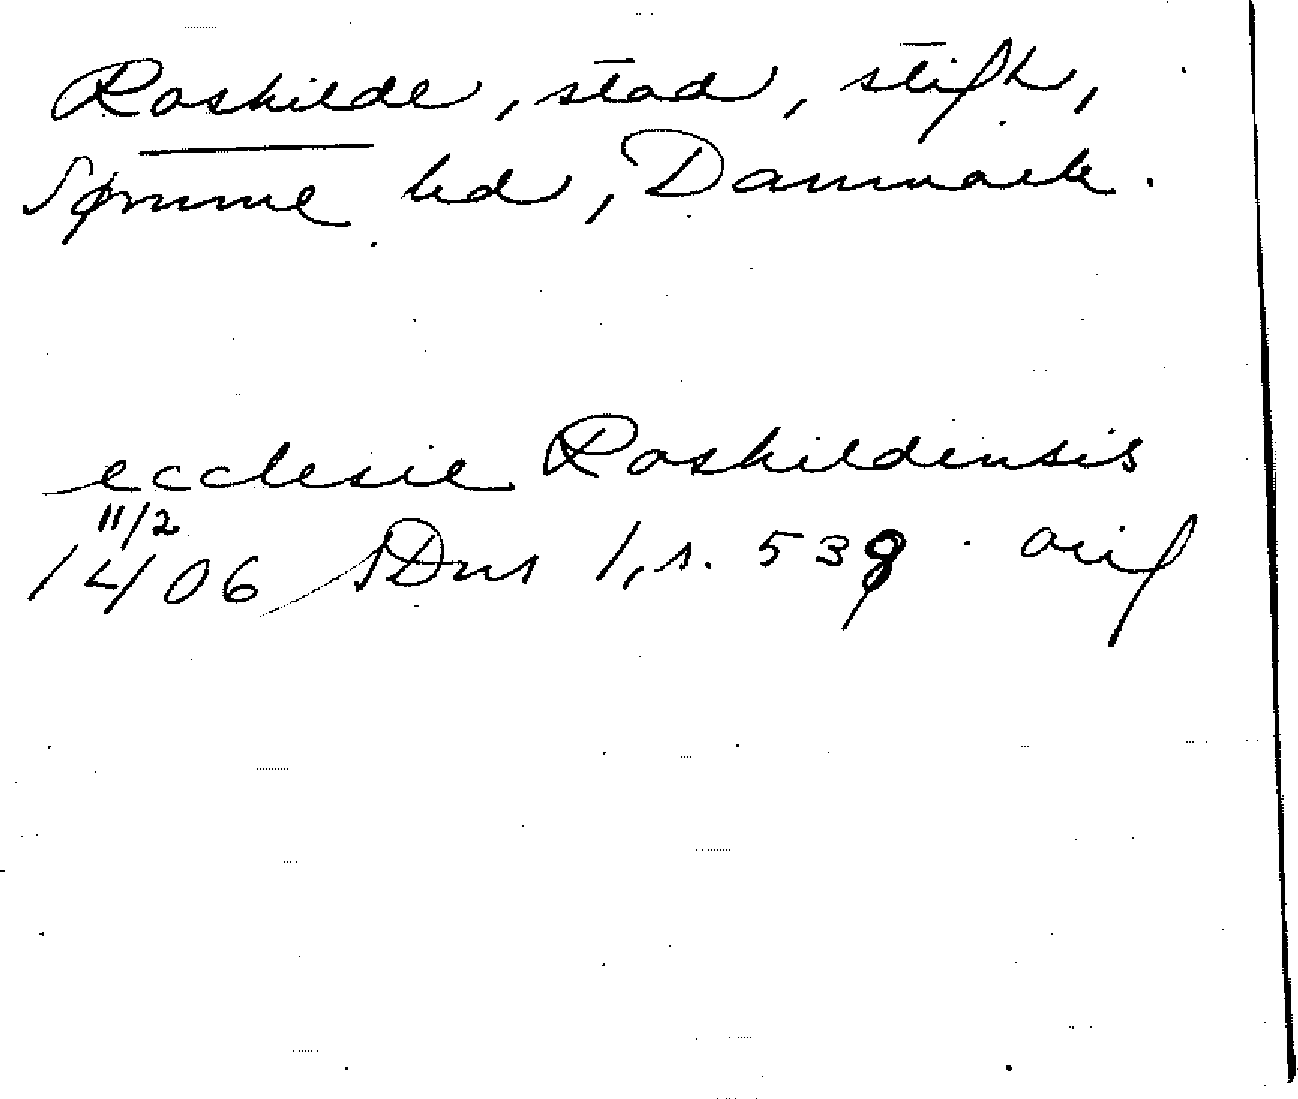 Roskilde, stad, stift,
Sømme hd, Danmark.
ecclesie Roskildensis
11/2
1406 SDns 1, s. 539 avs